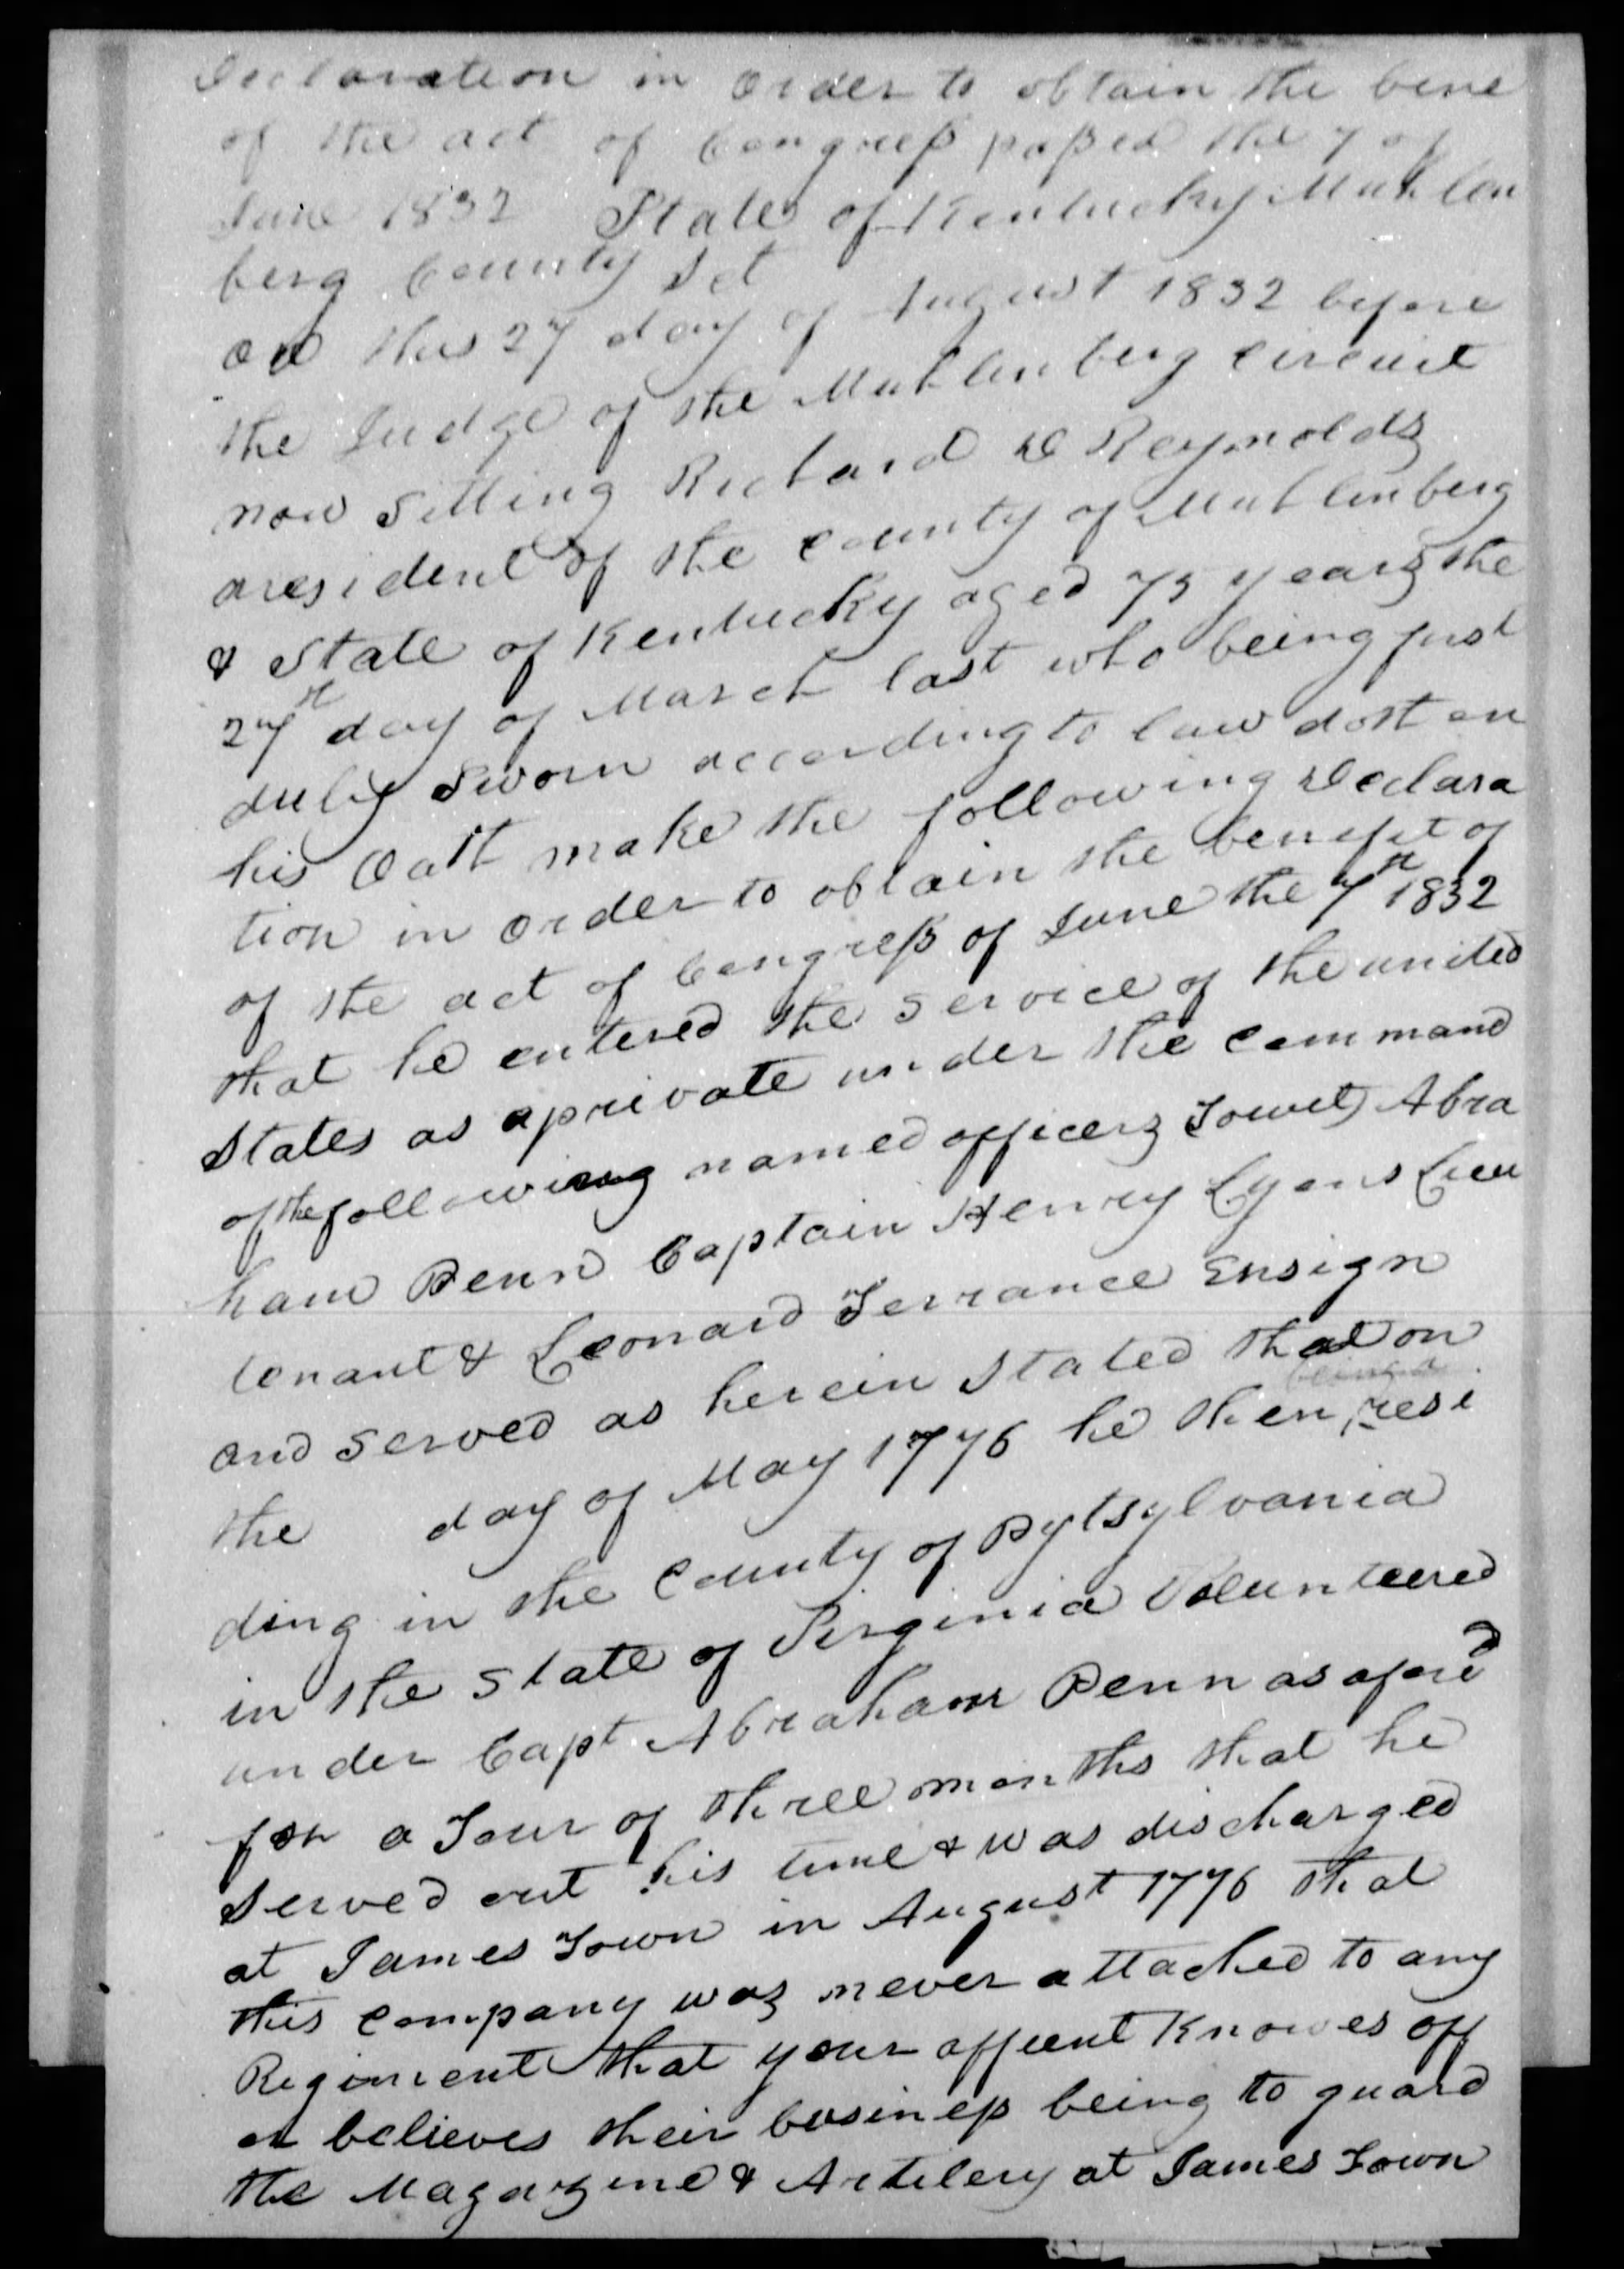 Declaration in order to obtain the bene
of the act of Congress passed the 7 of
June 1832 State of Kentucky Muhlen
berg County Sct
On this 27 day of August 1832 before
the Judge of the Muhlenberg circuit
now sitting Richard D Reynolds
aresident of the County of Muhlenberg
& State of Kentucky aged 75 years the
27th day of March last who being first
duly Sworn according to law doth on
his Oath make the following Declara
tion in order to obtain the benefit of
of the act of Congress of June the 7th 1832
that he entered the service of the united
States as aprivate under the command
of the following named officers Towit, Abra
ham Penn Captain Henry Lyons Lieu
tenant & Leonard Terrance Ensign
and served as herein Stated that on
the day of May 1776 he then being a resi
ding in the County of Pytsylvania
in the State of Virginia Volunteered
under Capt Abraham Penn as afored
for a Tour of three months that he
Served out his time & was discharged
at James Town in August 1776 that
this company was never attached to any
Regiment that your affient Knowes off
or believes their business being to guard
the Magazine & Artilery at James Town